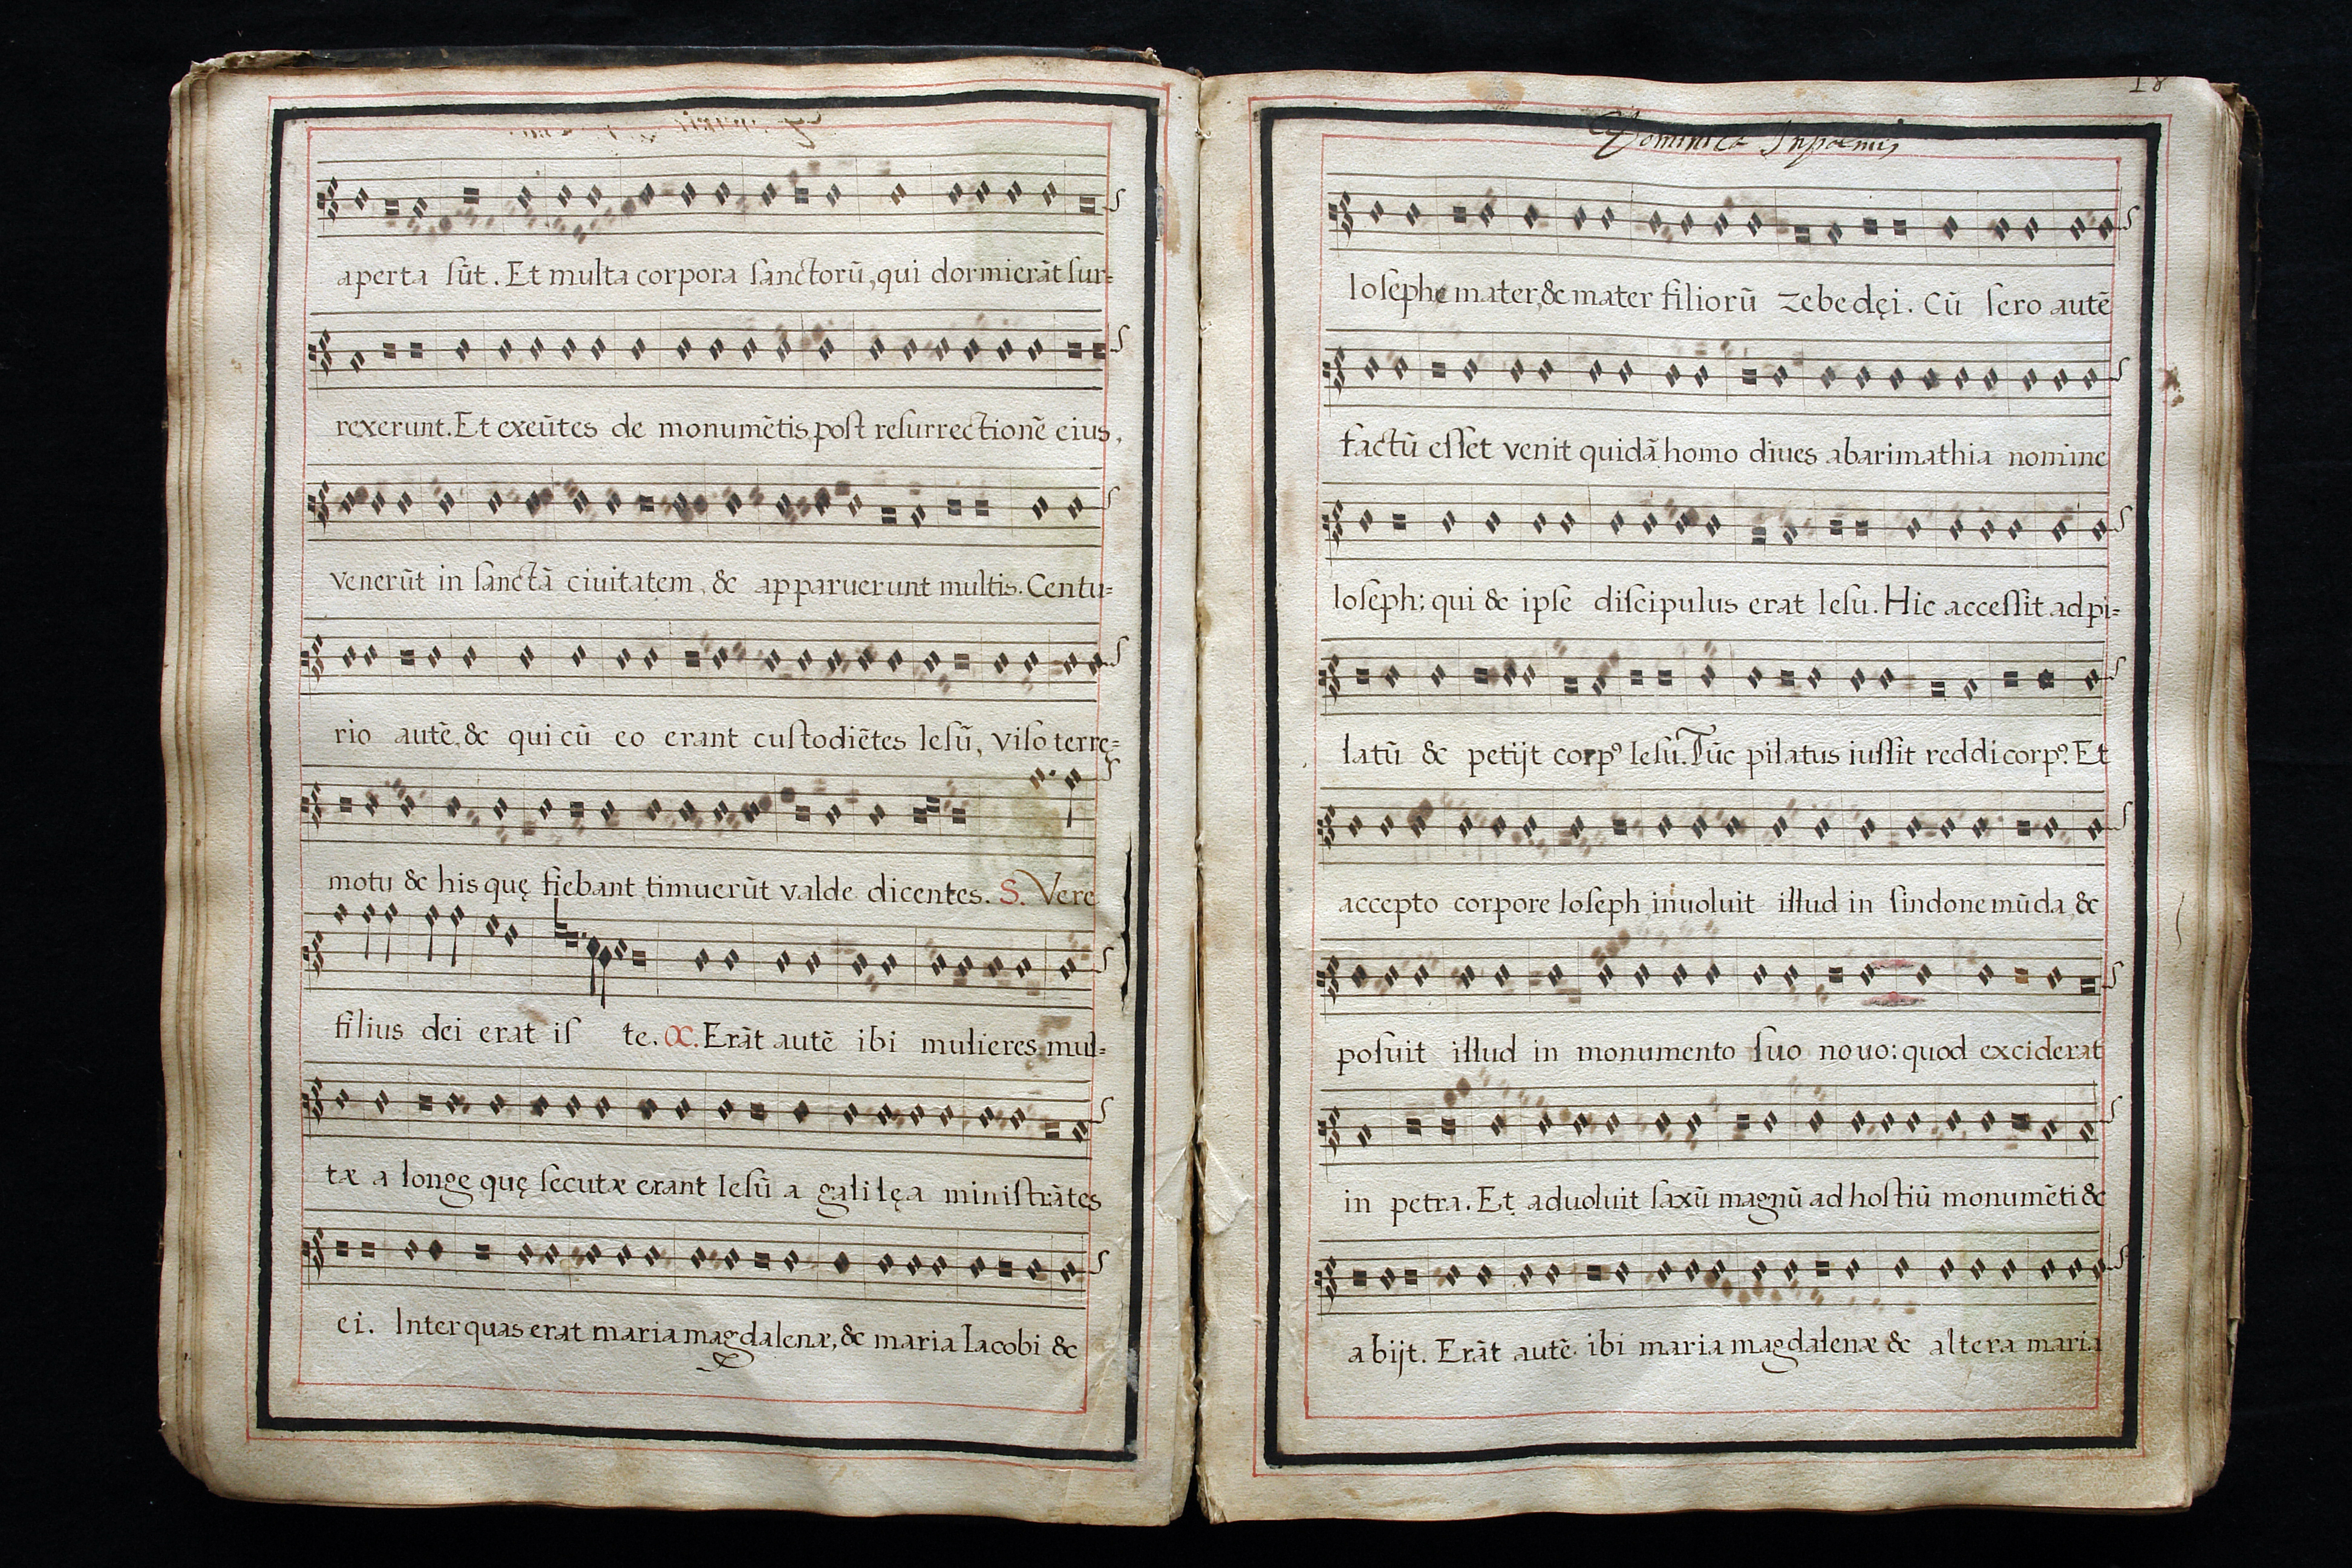 aperta ſũt. Et multa corpora ſanctorũ, qui dormierãt ſur=
rexerunt. Et exeũtes de monumẽtis post reſurrectionẽ eius,
venerũt in ſanctã ciuitatem, & apparuerunt multis. Centu=
rio autẽ, & qui cũ eo erant cuſtodiẽtes Ieſũ, viſo terrę=
motu & his quę fiebant timuerũt valde dicentes. S. Vere
filius dei erat iſ te. C. Erãt autẽ ibi mulieres mul=
tæ a longe quę ſecutæ erant Ieſũ a galilęa miniſtrãtes
ei. Inter quas erat maria magdalenæ, & maria Iacobi &
18
Dominica In palmis
Ioſeph mater, & mater filiorũ zebedęi. Cũ ſero autẽ
factũ eſſet venit quidã homo diues abarimathia nomine
Ioſeph: qui & ipſe diſcipulus erat Ieſu. Hic acceſſit ad pi=
latũ & petijt corpꝰ Ieſu. Tũc pilatus iuſſit reddi corpꝰ. Et
accepto corpore Ioſeph inuoluit illud in ſindone mũda, &
poſuit illud in monumento ſuo nouo: quod exciderat
in petra. Et aduoluit ſaxũ magnũ ad hoſtiũ monumẽti &
abijt. Erãt autẽ ibi maria magdalenæ & altera maria